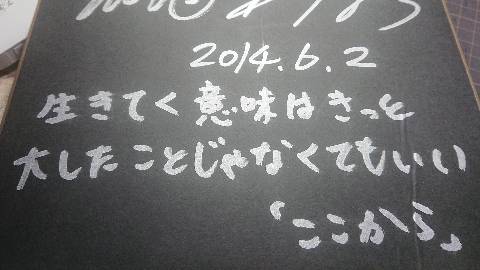 2014.6.2
生きてく意味はきっと
大したことじゃなくてもいい
「ここから」